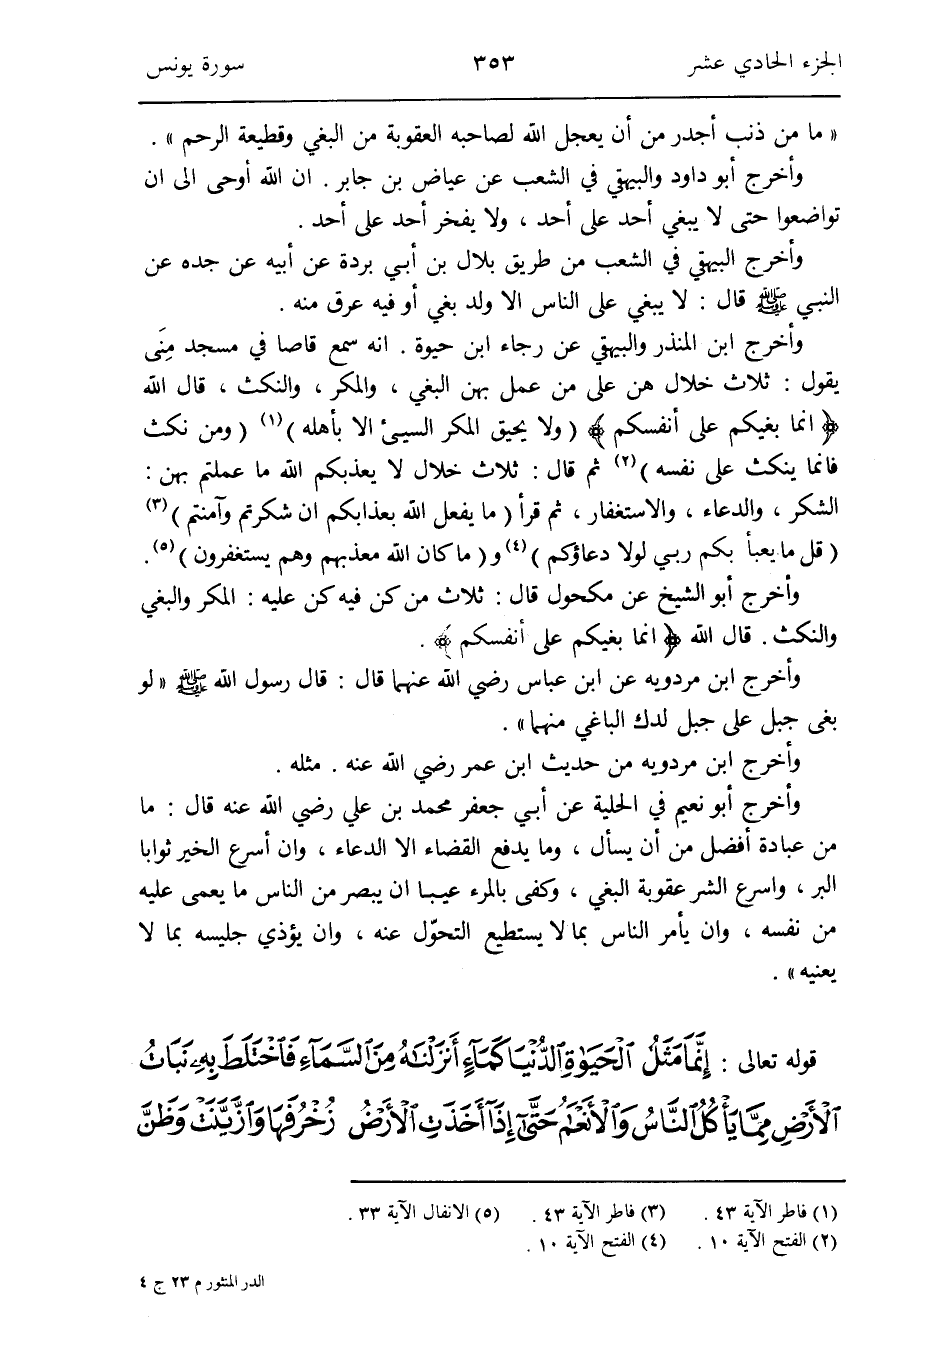 الجزء الحادي عشر ٣٥٣ سورة يونس
« ما من ذنب أجدر من أن يعجل الله لصاحبه العقوبة من البغي وقطيعة الرحم » .
وأخرج أبو داود والبيهقي في الشعب عن عياض بن جابر . ان الله أوحى الى ان
تواضعوا حتى لا يبغي أحد على أحد ، ولا يفخر أحد على أحد .
وأخرج البيهقي في الشعب من طريق بلال بن أبي بردة عن أبيه عن جده عن
النبي ﷺ قال : لا يبغي على الناس الا ولد بغي أو فيه عرق منه .
وأخرج ابن المنذر والبيهقي عن رجاء ابن حيوة . انه سمع قاصا في مسجد مِنَى
يقول : ثلاث خلال هن على من عمل بهن البغي ، والمكر ، والنكث ، قال الله
﴿ انما بغيكم على أنفسكم ﴾ ( ولا يحيق المكر السيئ الا بأهله )(١) ( ومن نكث
فانما ينكث على نفسه )(٢) ثم قال : ثلاث خلال لا يعذبكم الله ما عملتم بهن :
الشكر ، والدعاء ، والاستغفار ، ثم قرأ ( ما يفعل الله بعذابكم ان شكرتم وآمنتم )(٣)
( قل ما يعبأ بكم ربي لولا دعاؤكم )(٤) و ( ما كان الله معذبهم وهم يستغفرون )(٥).
وأخرج أبو الشيخ عن مكحول قال : ثلاث من كن فيه كن عليه : المكر والبغي
والنكث . قال الله ﴿ انما بغيكم على أنفسكم ﴾ .
وأخرج ابن مردويه عن ابن عباس رضي الله عنهما قال : قال رسول الله ﷺ « لو
بغى جبل على جبل لدك الباغي منهما » .
وأخرج ابن مردويه من حديث ابن عمر رضي الله عنه . مثله .
وأخرج أبو نعيم في الحلية عن أبي جعفر محمد بن علي رضي الله عنه قال : ما
من عبادة أفضل من أن يسأل ، وما يدفع القضاء الا الدعاء ، وان أسرع الخير ثوابا
البر ، واسرع الشر عقوبة البغي ، وكفى بالمرء عيبا ان يبصر من الناس ما يعمى عليه
من نفسه ، وان يأمر الناس بما لا يستطيع التحوّل عنه ، وان يؤذي جليسه بما لا
يعنيه » .
قوله تعالى : إِنَّمَا مَثَلُ ٱلْحَيَوٰةِ ٱلدُّنْيَا كَمَآءٍ أَنزَلْنَٰهُ مِنَ ٱلسَّمَآءِ فَٱخْتَلَطَ بِهِۦ نَبَاتُ
ٱلْأَرْضِ مِمَّا يَأْكُلُ ٱلنَّاسُ وَٱلْأَنْعَٰمُ حَتَّىٰٓ إِذَآ أَخَذَتِ ٱلْأَرْضُ زُخْرُفَهَا وَٱزَّيَّنَتْ وَظَنَّ
(١) فاطر الآية ٤٣ . (٣) فاطر الآية ٤٣ . (٥) الانفال الآية ٣٣ .
(٢) الفتح الآية ١٠ . (٤) الفتح الآية ١٠ .
الدر المنثور م ٢٣ ج ٤